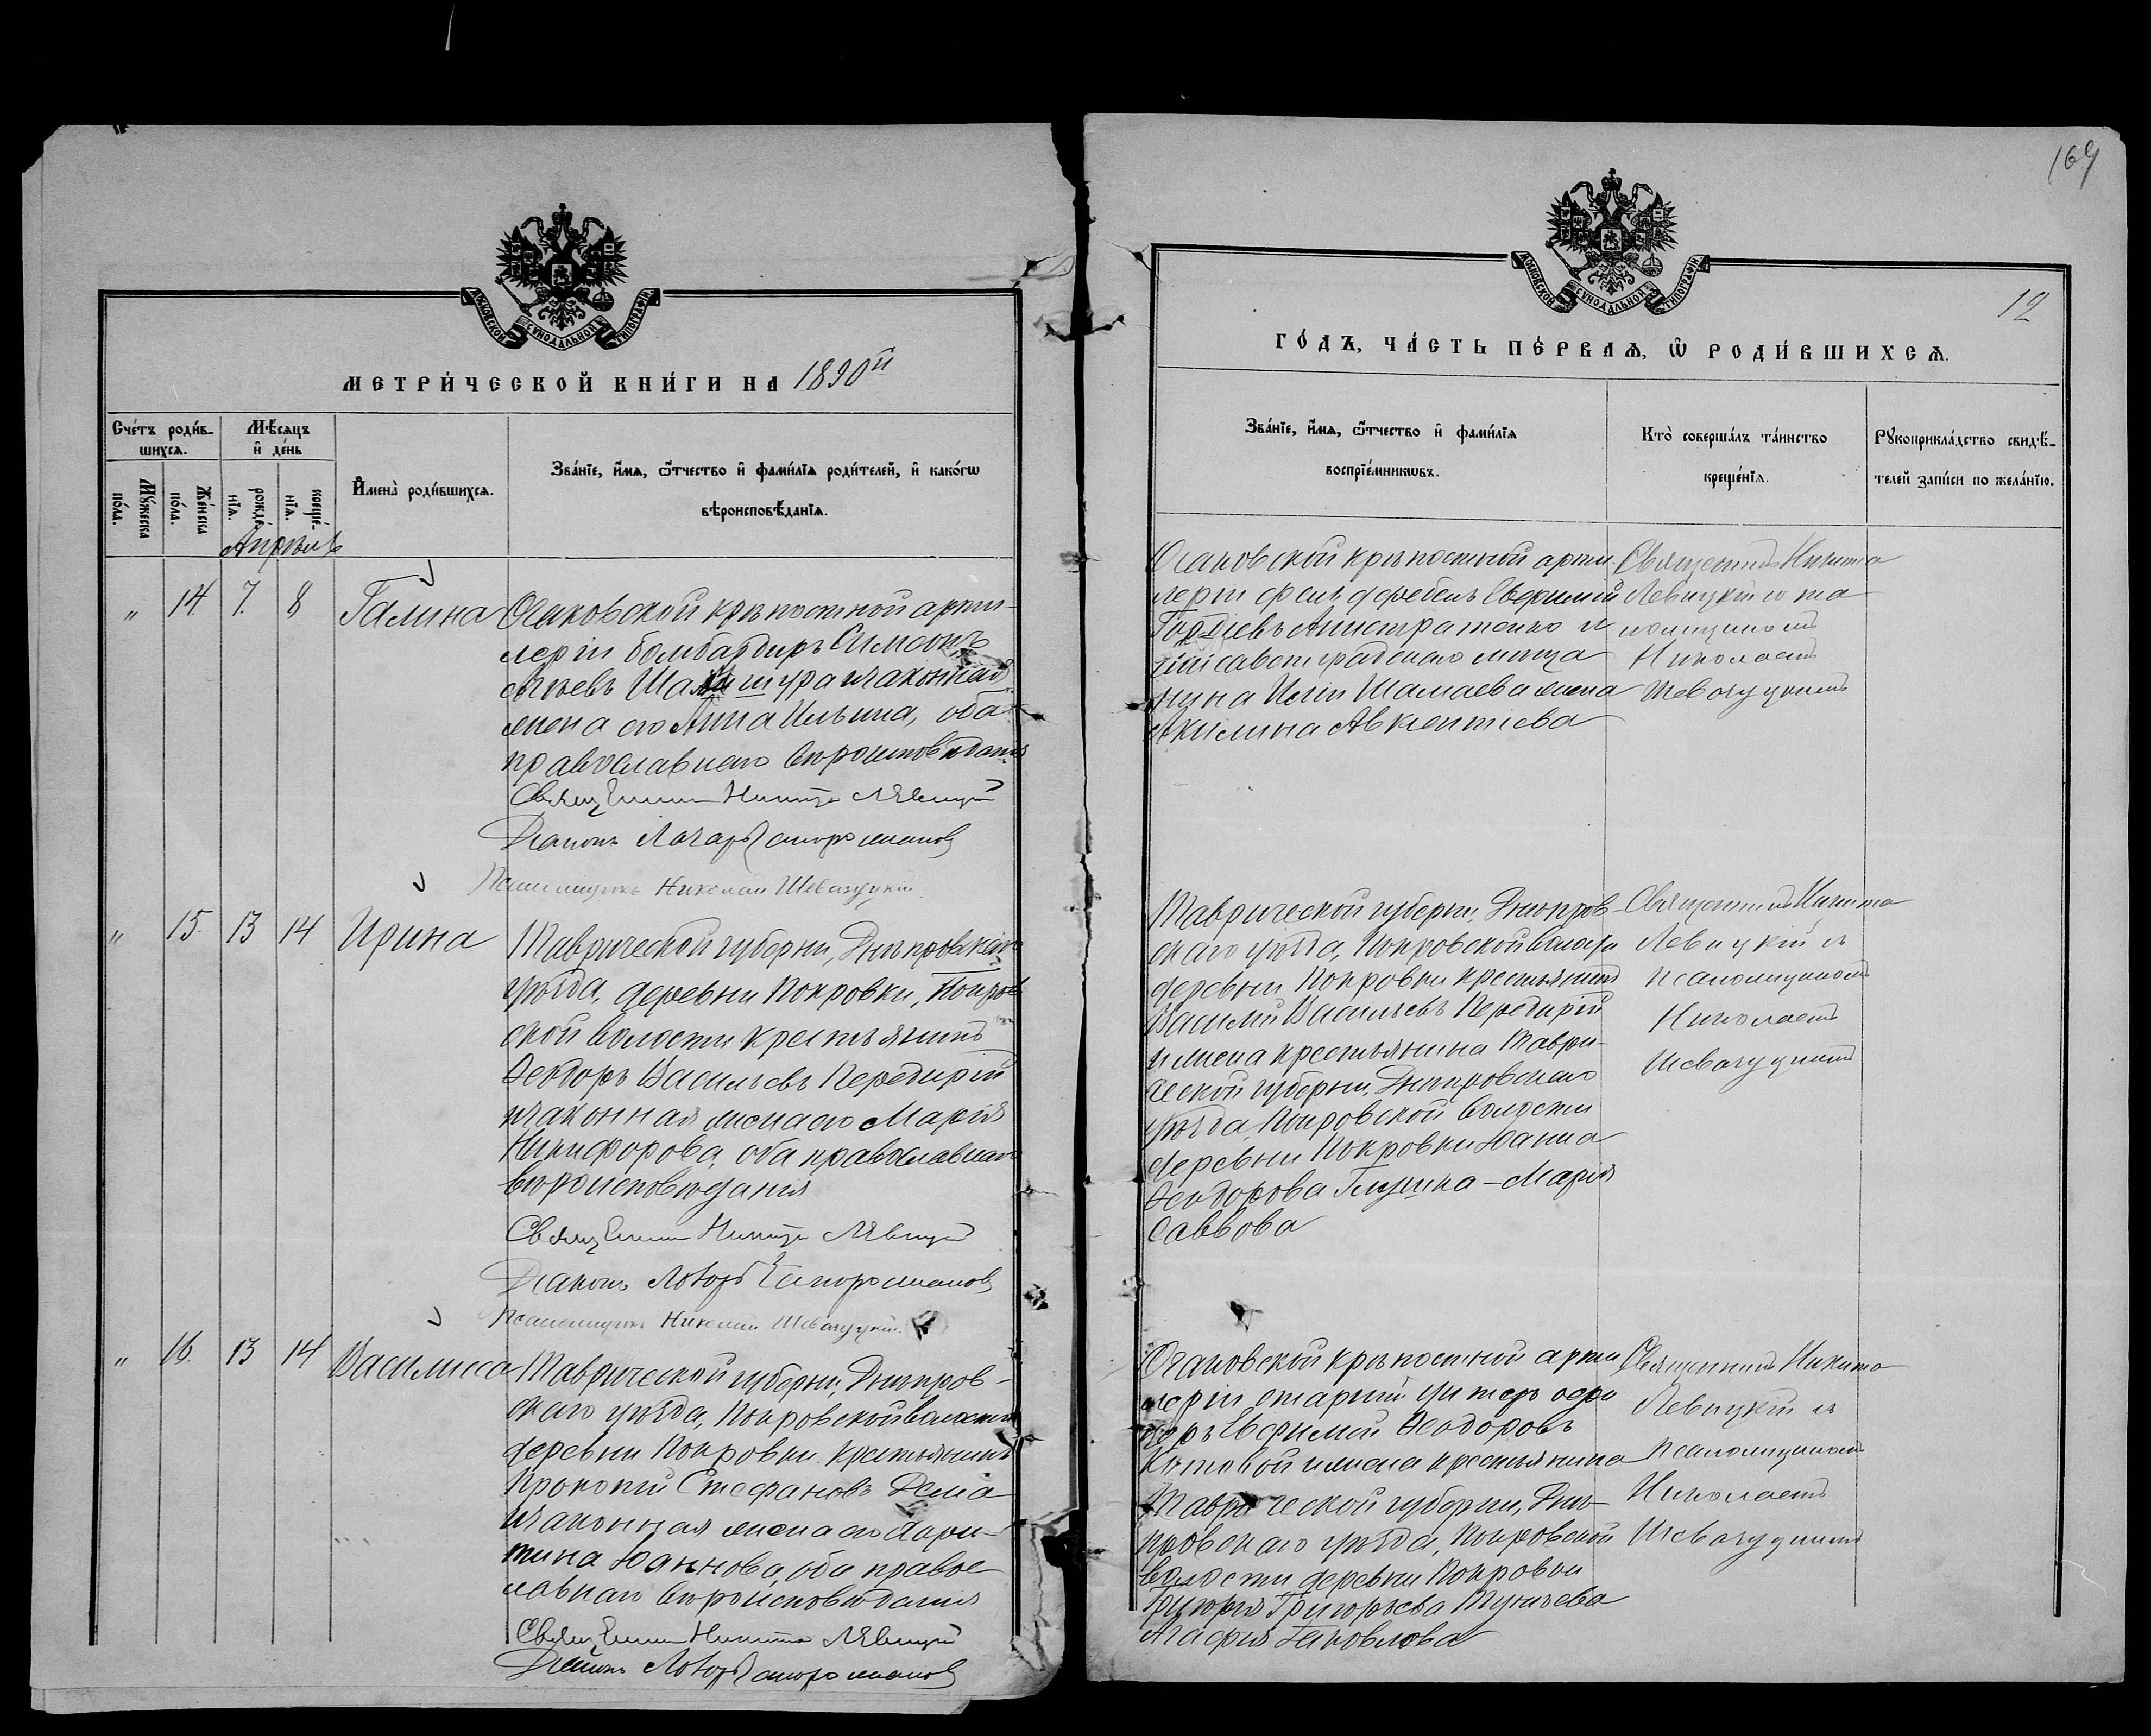 МЕТРИ́ЧЕСКОЙ КНИ́ГИ НА 1890й
Сче́тъ роди́в-
шихся.
Мѣ́сяцъ
и҆ де́нь
Мꙋ́жеска
по́ла.
Же́нска
по́ла.
рожде́-
нїѧ.
креще́-
нїѧ.
И҆мена̀ роди́вшихсѧ.
Зва́нїе, и҆́мѧ, ѻ҆́тчество и҆ фами́лїѧ роди́телей, и҆ како́гѡ
вѣроисповѣ́данїѧ.
Апрѣль
" 14. 7. 8 Галина
Очаковской крѣпостной арти-
леріи бомбардиръ Симеонъ
и законная
жена его Анна Ильина, оба
православнаго вѣроисповѣданія
Священникъ Никита Левицкій
Діаконъ Лазарь
Псаломщикъ Николай
" 15. 13 14 Ирина
Таврической губерніи, Днѣпровскаго
уѣзда, деревни Покровки, Покров
ской волости крестьянинъ
Ѳеодоръ Васильевъ Передирій
и законная жена его Марія
Никифорова, оба православнаго
вѣроисповѣданія
Священникъ Никита Левицкій
Діаконъ Лазарь
Псаломщикъ Николай
" 16. 13 14 Василисса
Таврической губерніи, Днѣпров-
скаго уѣзда, Покровской волости
деревни Покровки крестьянинъ
Прокопій Стефановъ
и законная жена его Хари-
тина Іоаннова, оба право
славнаго вѣроисповѣданія
Священникъ Никита Левицкій
Діаконъ Лазарь
169
12
ГО́ДЪ, ЧА́СТЬ ПЕ́РВАѦ, Ѡ҆ РОДИ́ВШИХСѦ.
Зва́нїе, и҆́мѧ, ѻ҆́тчество и҆ фами́лїѧ
воспрїе́мникѡвъ.
Кто̀ соверша́лъ та́инство
креще́нїѧ.
Рꙋкоприкла́дство свидѣ́-
телей за́писи по жела́нїю.
Очаковской крѣпостной арти
леріи фельдфебель Евфимій
Гордіевъ Анистратенко и
мѣща
нина Иліи Шамаева жена
Акилина Авксентіева
Священникъ Никита
Левицкій
Николаемъ
Таврической губерніи, Днѣпров-
скаго уѣзда, Покровской волости
деревни Покровки крестьянинъ
Василій Васильевъ Передирій
и жена крестьянина Таври-
ческой губерніи, Днѣпровскаго
уѣзда, Покровской волости
деревни Покровки Іоанна
Ѳеодорова - Марія
Саввова
Священникъ Никита
Левицкій съ
псаломщикомъ
Николаемъ
Очаковской крѣпостной арти
леріи старшій унтеръ офи
церъ Евфимій Ѳеодоровъ
и жена крестьянина
Таврической губерніи, Днѣ-
провскаго уѣзда, Покровской
волости деревни Покровки
Григорія Григорьева
Агафія Іаковлева
Священникъ Никита
Левицкій съ
псаломщикомъ
Николаемъ